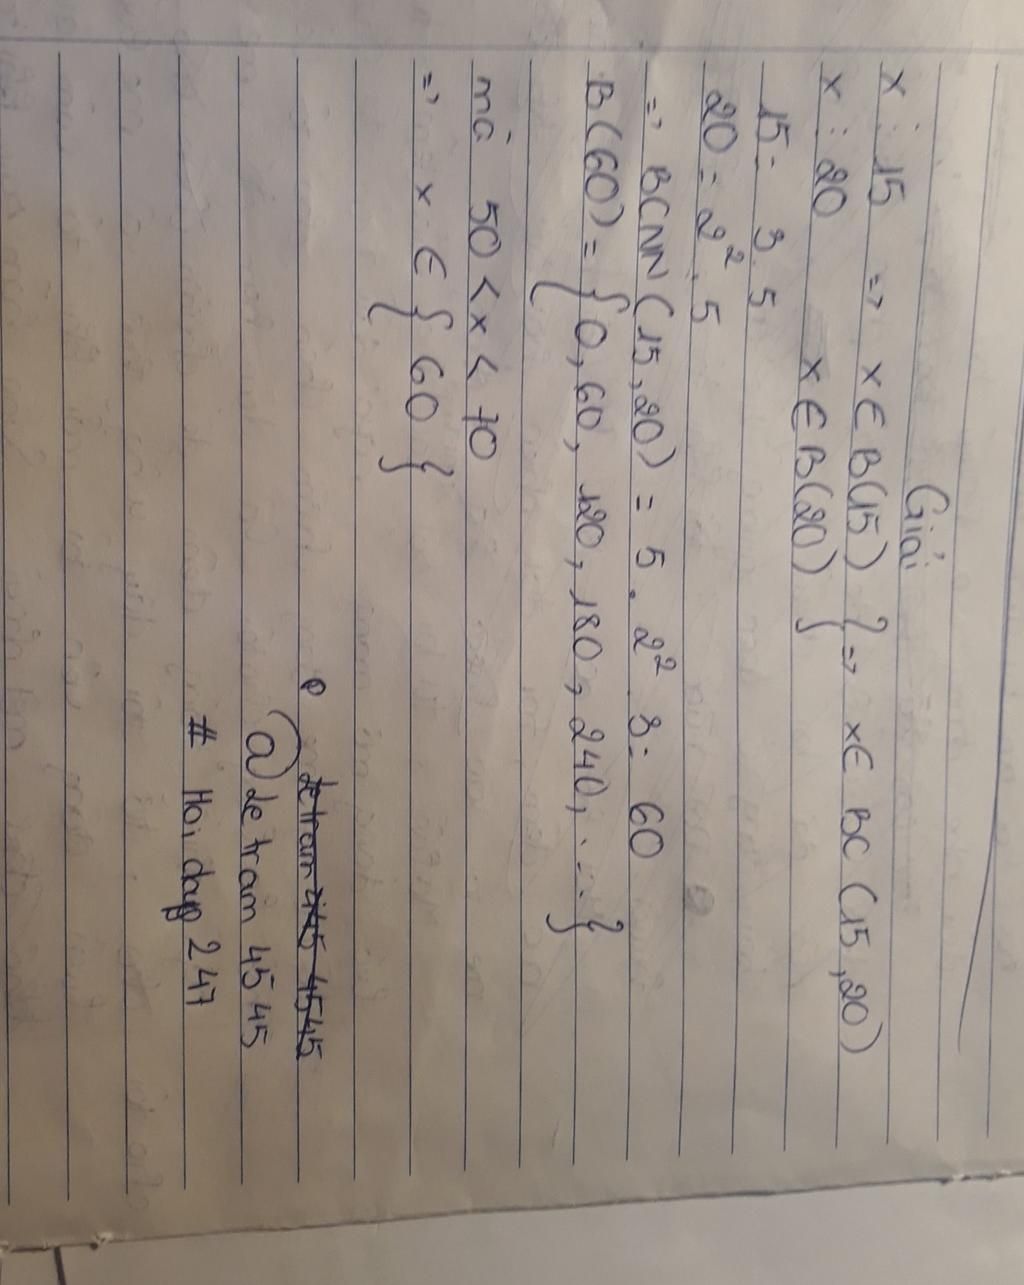 Giải
x ⋮ 15 => x ∈ B(15) } => x ∈ BC (15, 20)
x ⋮ 20 x ∈ B(20) }
15 = 3 . 5
20 = 2² . 5
=> BCNN (15, 20) = 5 . 2² . 3 = 60
B(60) = { 0, 60, 120, 180, 240, ... }
mà 50 < x < 70
=> x ∈ { 60 }
@ letram 4545
# Hoi dap 247